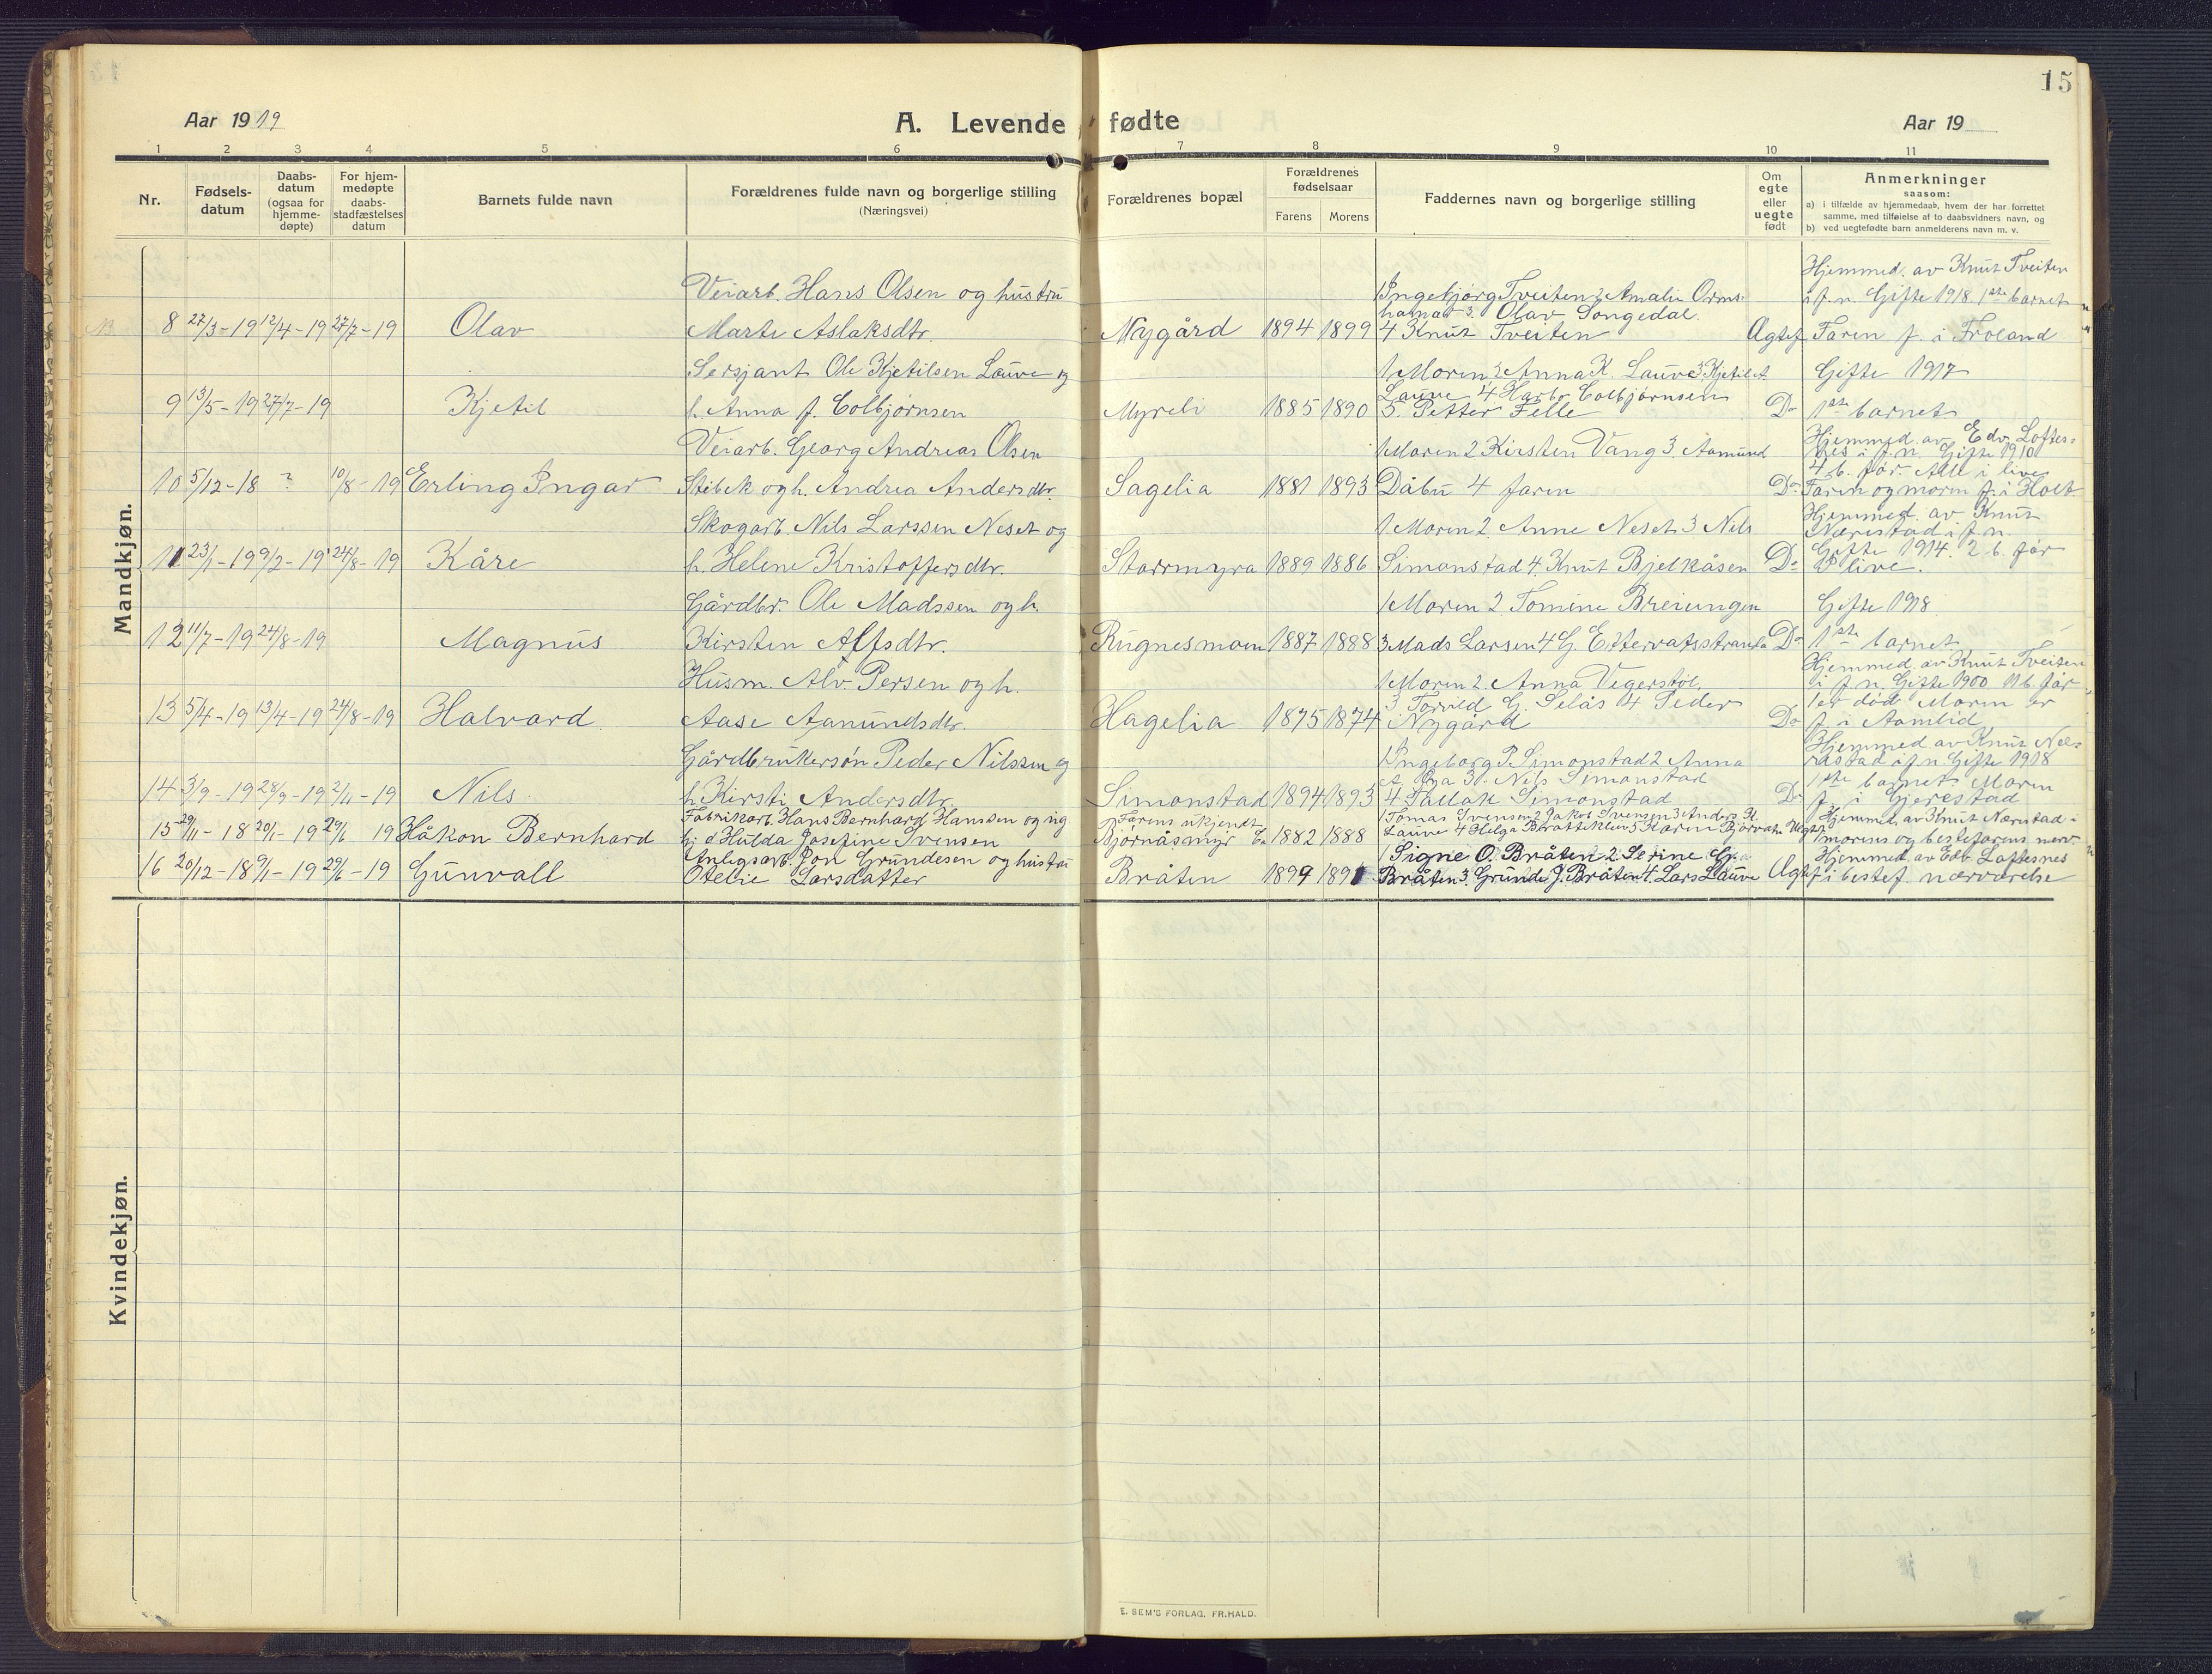 15
Aar 1919
A. Levende fødte
Aar 19
1 2 3 4 5 6 7 8 9 10 11
Nr.
Fødsels-
datum
Daabs-
datum
(ogsaa for
hjemme-
døpte)
For hjem-
medøpte
daabs-
stadfæstelses
datum
Barnets fulde navn
Forældrenes fulde navn og borgerlige stilling
(Næringsvei)
Forældrenes bopæl
Forældrenes
fødselsaar
Farens Morens
Faddernes navn og borgerlige stilling
Om
egte
eller
uegte
født
Anmerkninger
saasom:
a) i tilfælde av hjemmedaab, hvem der har forrettet
samme, med tilføielse af to daabsvidners navn, og
b) ved uegtefødte barn anmelderens navn m. v.
Mandkjøn.
8 27/3-19 12/4-19 27/7-19 Olav
Veiarb. Hans Olsen og hustru
Marte Aslaksdtr.
Nygård 1894 1899
1 Ingebjørg Tveiten 2 Amalie Orms-
hamar 3. Olav Songedal.
4 Knut Tveiten
Ægtef.
Hjemmed. av Knut Tveiten
i f. n. Gifte 1918. 1ste barnet
Faren f. i Froland
9 13/5-19 27/7-19 Kjetil
Sersjant Ole Kjetilsen Lauve og
h. Anna f. Colbjørnsen
Myreli 1885 1890
1 Moren 2 Anna K. Lauve 3 Kjetil A.
Lauve 4 Harbr Colbjørnsen
5. Petter Felle
Do
Gifte 1917
1ste barnet
10 5/12-18 ? 10/8-19 Erling Ingar
Veiarb. Georg Andreas Olsen
Stibek og h. Andrea Andersdtr.
Sagelia 1881 1893
1 Moren 2 Kirsten Vang 3 Aamund
Dåbu 4 faren
Do
Hjemmed. av Edv. Loftes-
nes i f. n. Gifte 1910
4 b. før. Alle i live
Faren og moren f. i Holt
11 23/1-19 9/2-19 24/8-19 Kåre
Skogarb. Nils Larssen Neset og
h. Helene Kristoffersdtr.
Starrmyra 1889 1886
1 Moren 2. Anne Neset 3 Nils
Simonstad 4. Knut Bjelkåsen
Do
Hjemmed. av Knut
Nærestad i f. n.
Gifte 1914. 2 b. før
i live.
12 11/7-19 24/8-19 Magnus
Gårdbr. Ole Madssen og h.
Kirsten Alfsdtr.
Rugnesmoen 1887 1888
1 Moren 2 Tomine Breiungen
3 Mads Larsen 4 G. Ettervatsstranda
Do
Gifte 1918.
1ste barnet
13 5/4-19 13/4-19 24/8-19 Halvard
Husm. Alv. Persen og h.
Aase Aanundsdtr.
Hagelia 1875 1874
1 Moren 2. Anna Vegerstøl.
3 Torvild G. Selås 4 Peder
i Nygård
Do
Hjemmed. av Knut Tveiten
i f. n. Gifte 1900 11 b. før
1 er død Moren er
f. i Aamlid
14 3/9-19 28/9-19 2/11-19 Nils
Gårdbrukersøn Peder Nilssen og
h. Kirsti Andersdtr.
Simonstad 1894 1893
1 Ingeborg P. Simonstad 2 Anna
3. Nils Simonstad
4 Tallak Simonstad
Do
Hjemmed. av Knut Nær-
rastad i f. n. Gifte 1918
1ste barnet Moren
f. i Gjerestad
15 29/11-18 20/1-19 29/6 19 Håkon Bernhard
Fabrikarb. Hans Bernhard Hanssen og ug
pi. d Hulda Josefine Svensen
Farens ukjendt
Bjørnåsmyr 1882 1888
1 Tomas Svensen 2 Jakob Svensen 3 Anders K.
Lauve 4 Helga Bratteklev 5 Karen Bjorvatn
Uegte
Hjemmed. av Knut Nærstad i
morens og bestefarens nærv.
16 20/12-18 9/1-19 29/6-19 Gunvall
Anlegsarb. Jon Grundesen og hustru
Otelie Larsdatter
Bråten 1899 1891
1 Signe O. Bråten 2. Serine G.
Bråten 3. Grunde J. Bråten 4. Lars Lauve
Ægtef
Hjemmed. av Edv. Loftesnes
i bestef. nærværelse
Kvindekjøn.
E. SEM'S FORLAG, FR.HALD.